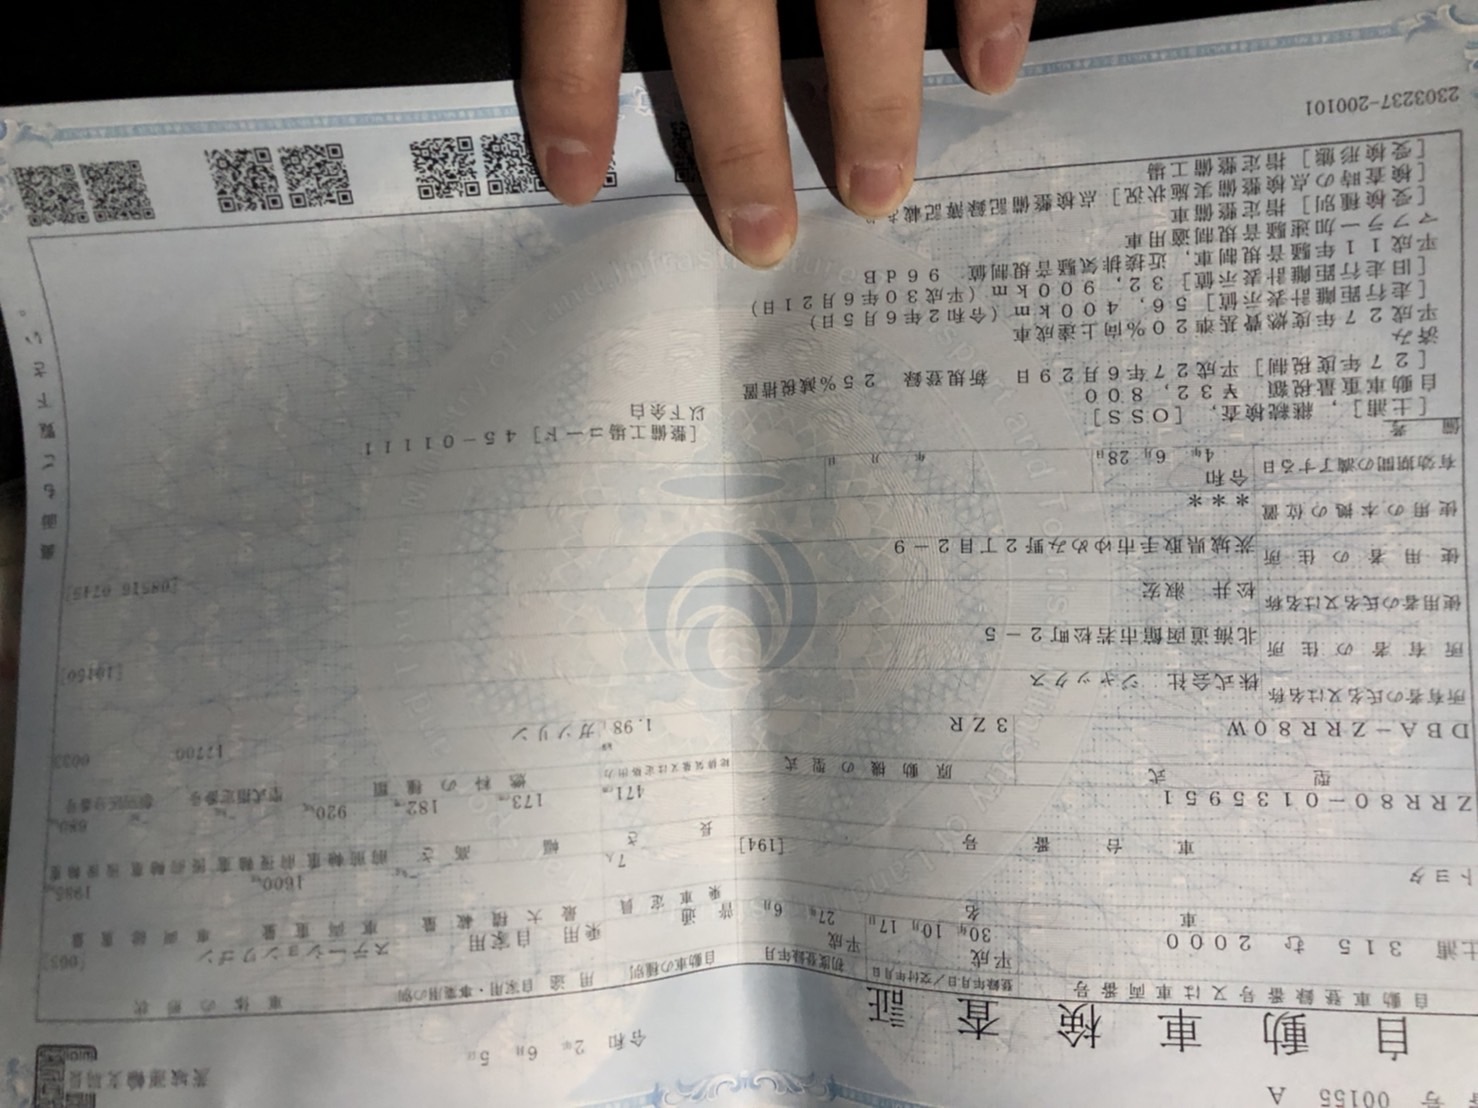 号 00155 A
自動車検査証
令和 2年 6月 5日
茨城運輸支局長
自動車登録番号又は車両番号 登録年月日/交付年月日 初度登録年月 自動車の種別 用途 自家用・事業用の別 車体の形状
土浦 315 む 2000 平成 30年 10月 17日 平成 27年 6月 普通 乗用 自家用 ステーションワゴン [003]
車名 乗車定員 最大積載量 車両重量 車両総重量
トヨタ [194] 7人 1600kg 1985kg
車台番号 長さ 幅 高さ 前前軸重 前後軸重 後前軸重 後後軸重
ZRR80-0135951 471cm 173cm 182cm 920kg 680kg
型式 原動機の型式 総排気量又は定格出力 燃料の種類 型式指定番号 類別区分番号
DBA-ZRR80W 3ZR 1.98 ガソリン 17700 0033
所有者の氏名又は名称 株式会社 ジャックス
所有者の住所 北海道函館市若松町2-5 [10160]
使用者の氏名又は名称 松井 淑宏
使用者の住所 茨城県取手市ゆめみ野2丁目2-9 [08516 0745]
使用の本拠の位置 ***
有効期間の満了する日 令和 4年 6月 28日 年 月 日
備考
[土浦], 継続検査, [OSS]
自動車重量税額 ¥32,800
[27年度税制] 平成27年6月29日 新規登録 25%減税措置
済み
平成27年度燃費基準20%向上達成車
[走行距離計表示値] 56,400km (令和2年6月5日)
[旧走行距離計表示値] 32,900km (平成30年6月21日)
平成11年騒音規制車, 近接排気騒音規制値 96dB
マフラー加速騒音規制適用車
[受検種別] 指定整備車
[検査時の点検整備実施状況] 点検整備記録簿記載あ
[受検形態] 指定整備工場
[整備工場コード] 45-01111
以下余白
裏面もご覧下さい。
2303237-200101